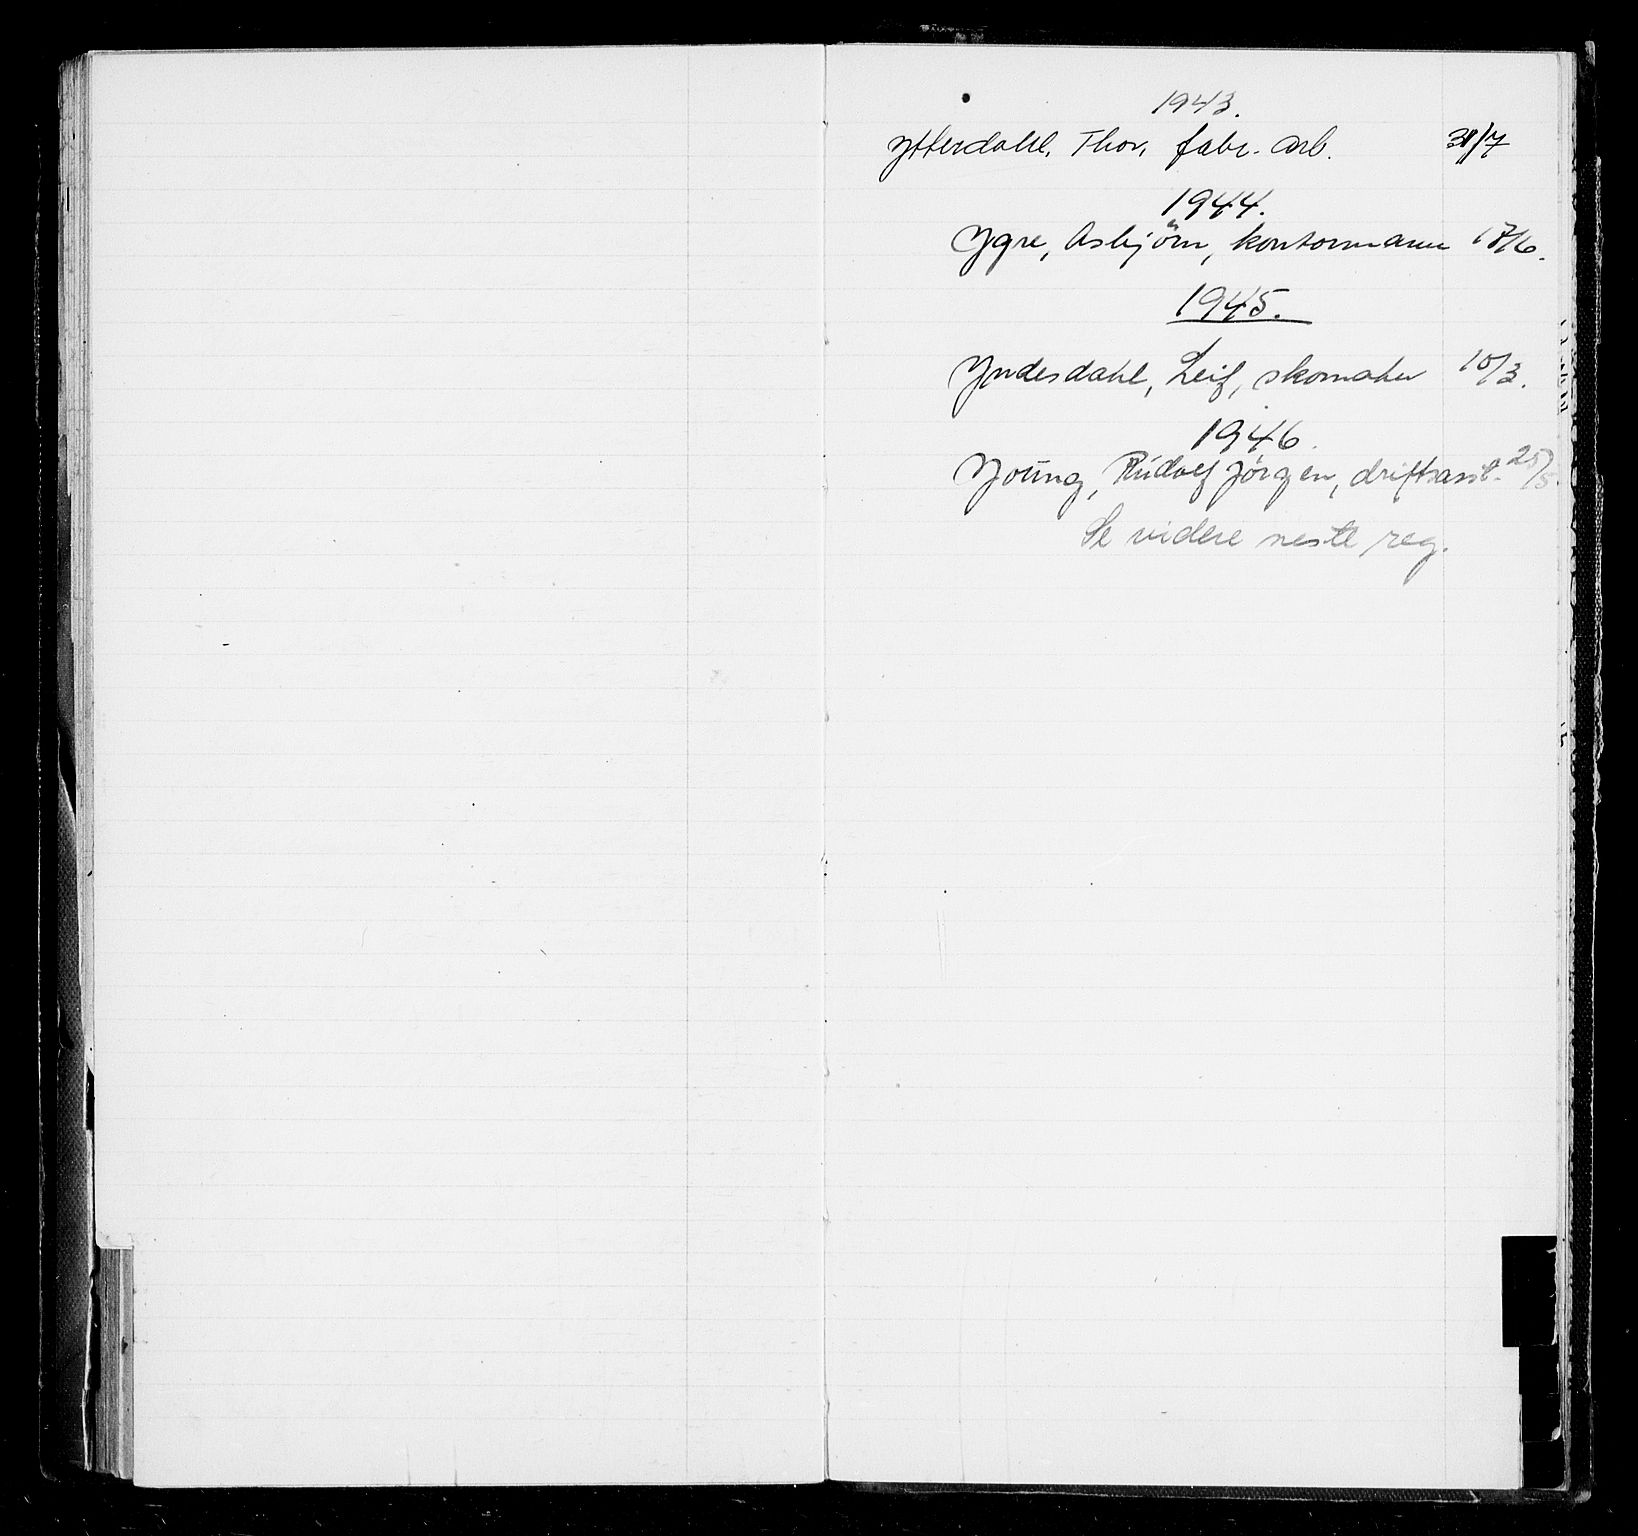 1943.
Ytterdahl, Thor, fabr. arb. 31/7
1944.
Ygre, Asbjörn, kontormann 17/6.
1945.
Yndesdahl, Leif, skomaker 10/3.
1946.
Young, Rudolf Jörgen, driftsass. 25/5.
Se videre neste reg.